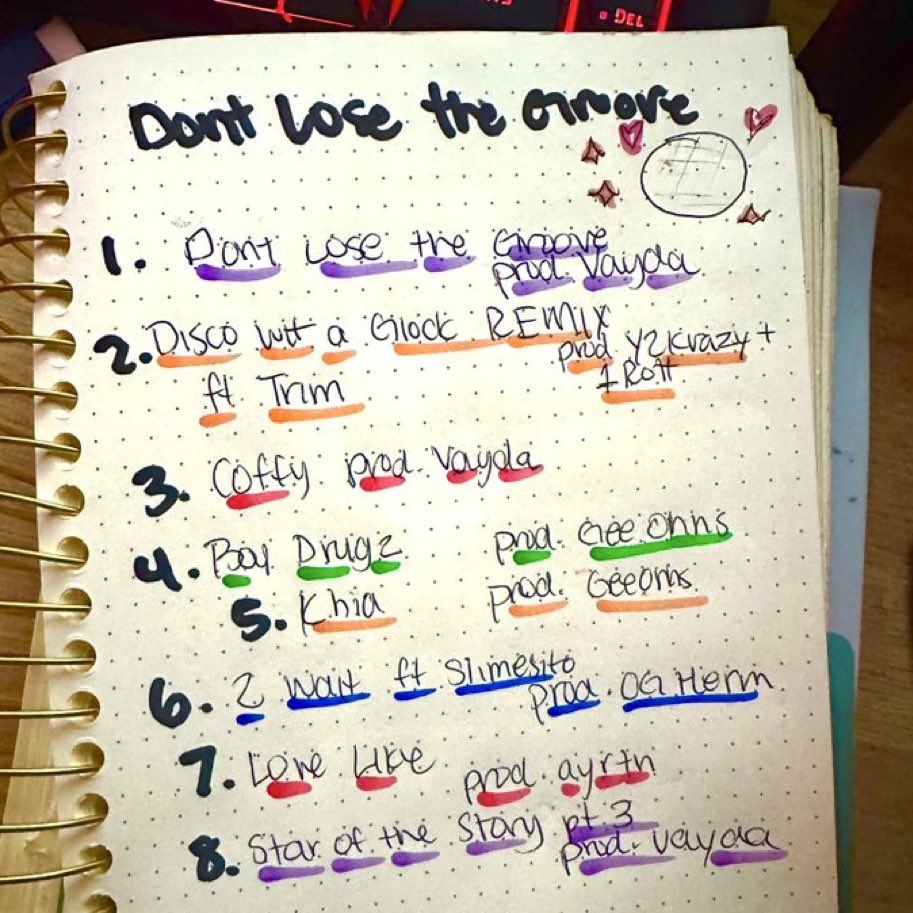 DEL
Dont Lose the Groove
1. Dont Lose the Groove
prod. Vayda
2. Disco wit a Glock REMIX
prod Y2Krazy +
ft Trim
3. Coffy prod. Vayda
4. Boy Drugz prod. Gee Ohns
5. Khia prod. Geeohns
6. 2 Wait ft Slimesito
prod. OG Herm
7. Love Like prod. ayrtn
8. Star of the Story pt. 3
prod. Vayda